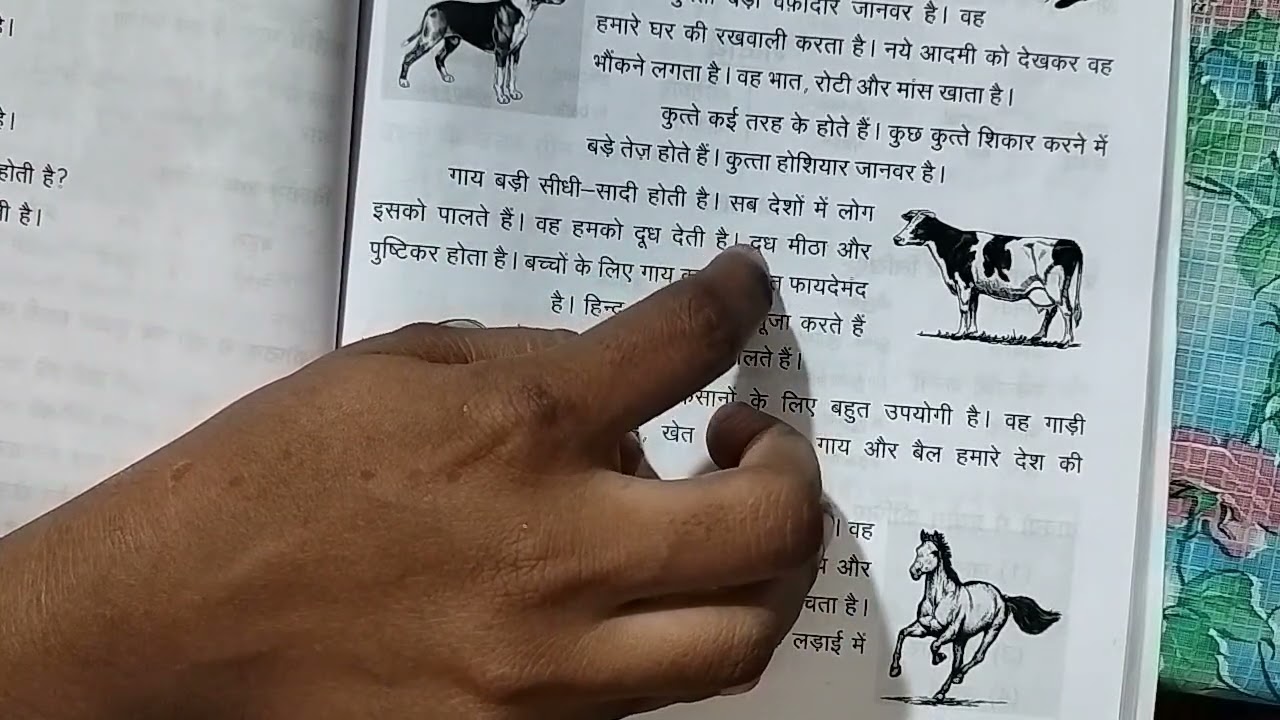 है।
है।
होती है?
ती है।
बड़ा वफ़ादार जानवर है। वह
हमारे घर की रखवाली करता है। नये आदमी को देखकर वह
भौंकने लगता है। वह भात, रोटी और मांस खाता है।
कुत्ते कई तरह के होते हैं। कुछ कुत्ते शिकार करने में
बड़े तेज़ होते हैं। कुत्ता होशियार जानवर है।
गाय बड़ी सीधी–सादी होती है। सब देशों में लोग
इसको पालते हैं। वह हमको दूध देती है। दूध मीठा और
पुष्टिकर होता है। बच्चों के लिए गाय फायदेमंद
है। पूजा करते हैं
हैं।
के लिए बहुत उपयोगी है। वह गाड़ी
खेत गाय और बैल हमारे देश की
। वह
और
है।
लड़ाई में